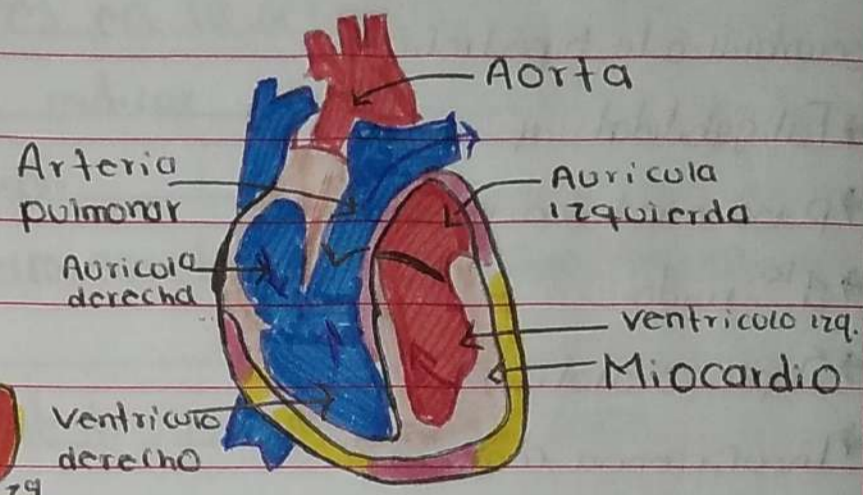 Aorta
Arteria
pulmonar
Auricula
izquierda
Auricola
derecha
ventricolo izq.
Miocardio
Ventriculo
derecho